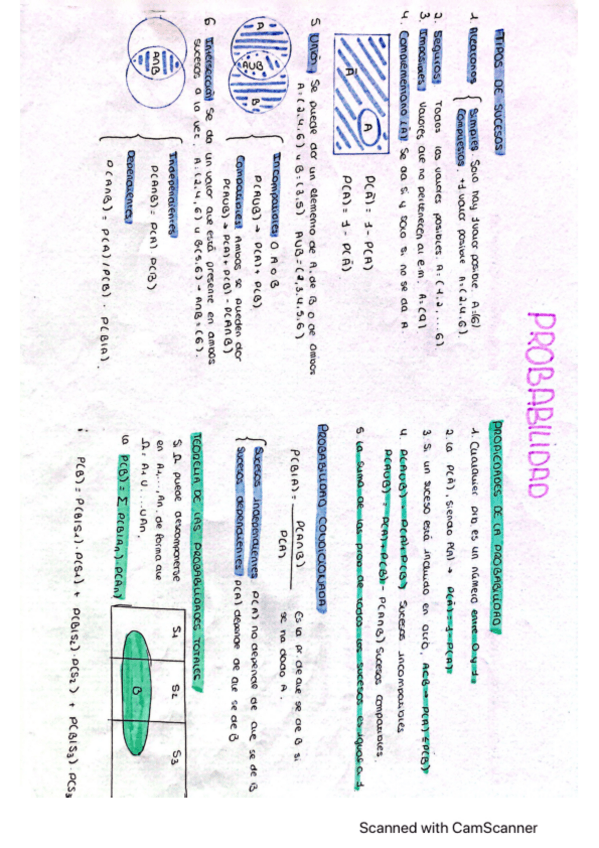 PROBABILIDAD
TIPOS DE SUCESOS
1. Aleatorios { Simples. Solo hay 1 valor posible. A:(6)
Compuestos. +1 valor posible. A:(2,4,6).
2. Seguros. Todos los valores posibles. A:(1,2,...6)
3. Imposibles. Valores que no pertenecen al e.m. A:(9)
4. Complementario (Ā) Se da si y solo si no se da A
Ā
A
P(Ā) = 1 - P(A)
P(A) = 1 - P(Ā)
5. Unión. Se puede dar un elemento de A, de B o de ambos
A:(2,4,6) u B:(3,5) AUB=(2,3,4,5,6)
A
AUB
B
Incompatibles O A o B
P(AUB) → P(A) + P(B)
Compatibles. Ambos se pueden dar
P(AUB) → P(A) + P(B) - P(A∩B)
6 Intersección. Se da un valor que está presente en ambos
sucesos a la vez. A:(2,4,6) u B(5,6) → A∩B=(6).
A∩B
Independientes
P(A∩B) = P(A) · P(B)
Dependientes
P(A∩B) = P(A)/P(B) · P(B|A).
PROPIEDADES DE LA PROBABILIDAD
1. Cualquier pro. es un número entre 0 y 1
2. La P(Ā), siendo P(A) → P(Ā) = 1 - P(A)
3. Si un suceso está incluido en otro, ACB → P(A) ≤ P(B)
4. P(AUB) = P(A) + P(B) Sucesos incompatibles
P(AUB) = P(A) + P(B) - P(A∩B) Sucesos compatibles.
5. La suma de las prob de todos los sucesos es igual a 1
PROBABILIDAD CONDICIONADA
P(B|A) = P(A∩B) / P(A)
Es la pr. de que se de B si
se ha dado A.
Sucesos independientes P(A) no depende de que se de B
Sucesos dependientes P(A) depende de que se de B
TEOREMA DE LAS PROBABILIDADES TOTALES
Si Ω puede descomponerse
en A1,...,An, de forma que
Ω = A1 U ... U An.
la P(B) = Σ P(B|An)·P(An)
S1
S2
S3
B
P(B) = P(B|S1)·P(S1) + P(B|S2)·P(S2) + P(B|S3)·P(S3
Scanned with CamScanner